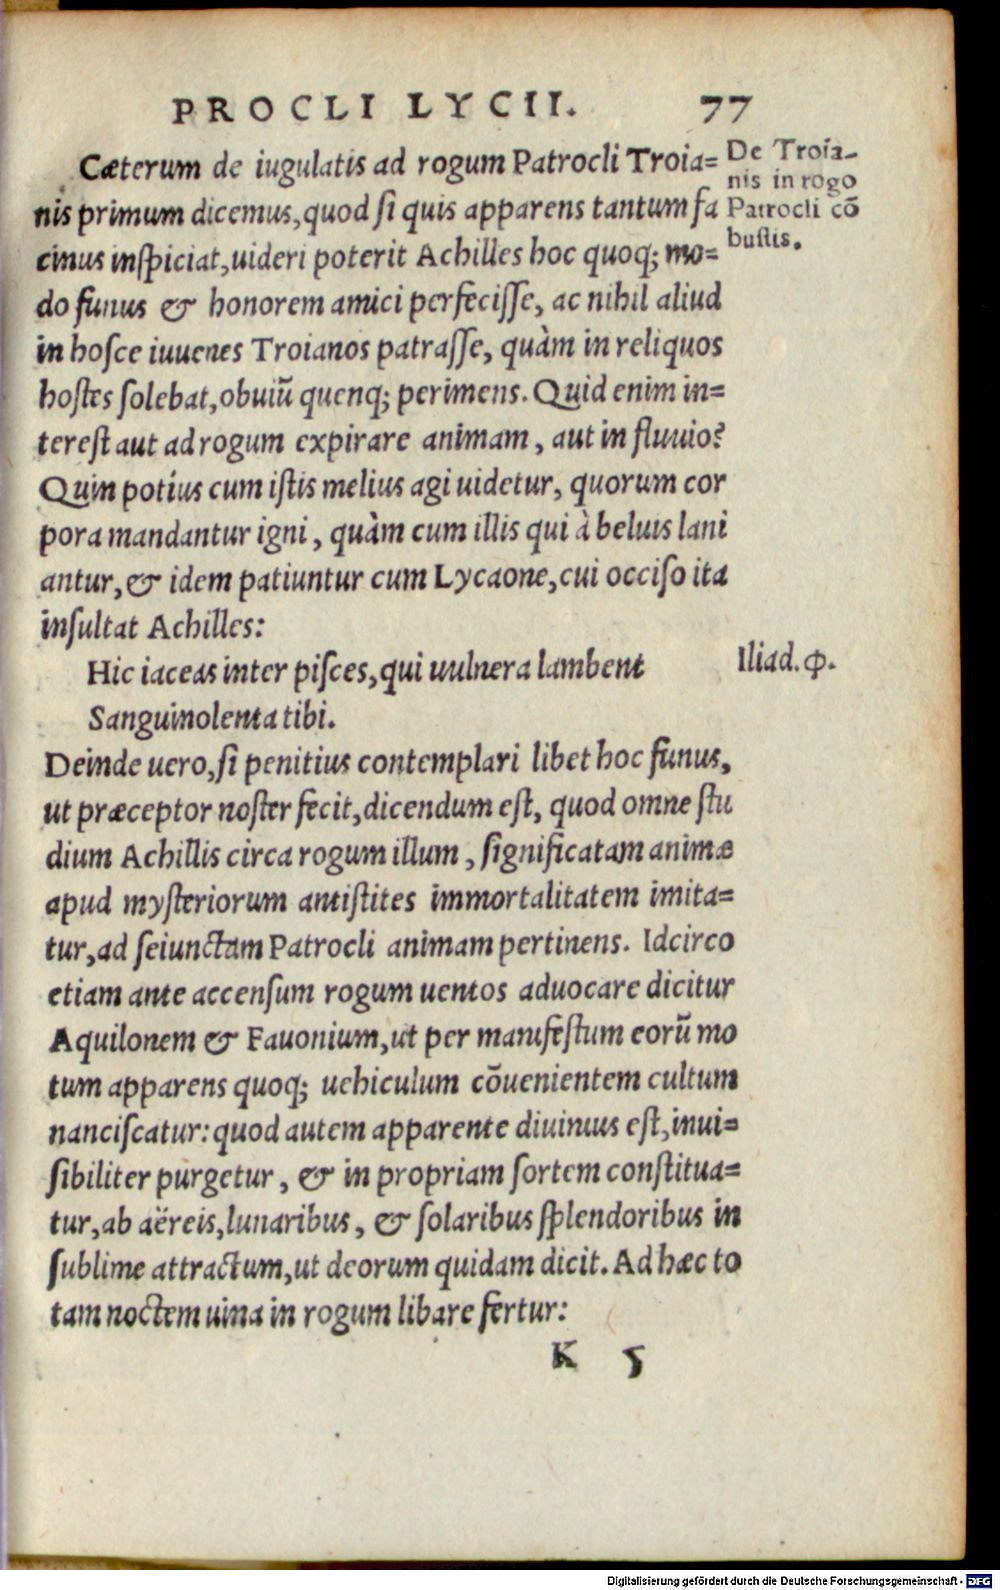 PROCLI LYCII. 77
Cæterum de iugulatis ad rogum Patrocli Troia=
nis primum dicemus, quod si quis apparens tantum fa
cinus inspiciat, uideri poterit Achilles hoc quoq; mo=
do funus & honorem amici perfecisse, ac nihil aliud
in hosce iuuenes Troianos patrasse, quàm in reliquos
hostes solebat, obuiũ quenq; perimens. Quid enim in=
terest aut ad rogum expirare animam, aut in fluuio?
Quin potíus cum istis melius agi uidetur, quorum cor
pora mandantur igni, quàm cum illis qui à beluis lani
antur, & idem patiuntur cum Lycaone, cui occiso ita
insultat Achilles:
Hic iaceas inter pisces, qui uulnera lambent
Sanguinolenta tibi.
Deinde uero, si penitius contemplari libet hoc funus,
ut præceptor noster fecit, dicendum est, quod omne stu
dium Achillis circa rogum illum, significatam animæ
apud mysteriorum antistites immortalitatem imita=
tur, ad seiunctam Patrocli animam pertinens. Idcirco
etiam ante accensum rogum uentos aduocare dicitur
Aquilonem & Fauonium, ut per manifestum eorũ mo
tum apparens quoq; uehiculum cõuenientem cultum
nanciscatur: quod autem apparente diuinius est, inui=
sibiliter purgetur, & in propriam sortem constitua=
tur, ab aëreis, lunaribus, & solaribus splendoribus in
sublime attractum, ut deorum quidam dicit. Ad hæc to
tam noctem uina in rogum libare fertur:
K 5
De Troia-
nis in rogo
Patrocli cõ
bustis.
Iliad. φ.
Digitalisierung gefördert durch die Deutsche Forschungsgemeinschaft - DFG